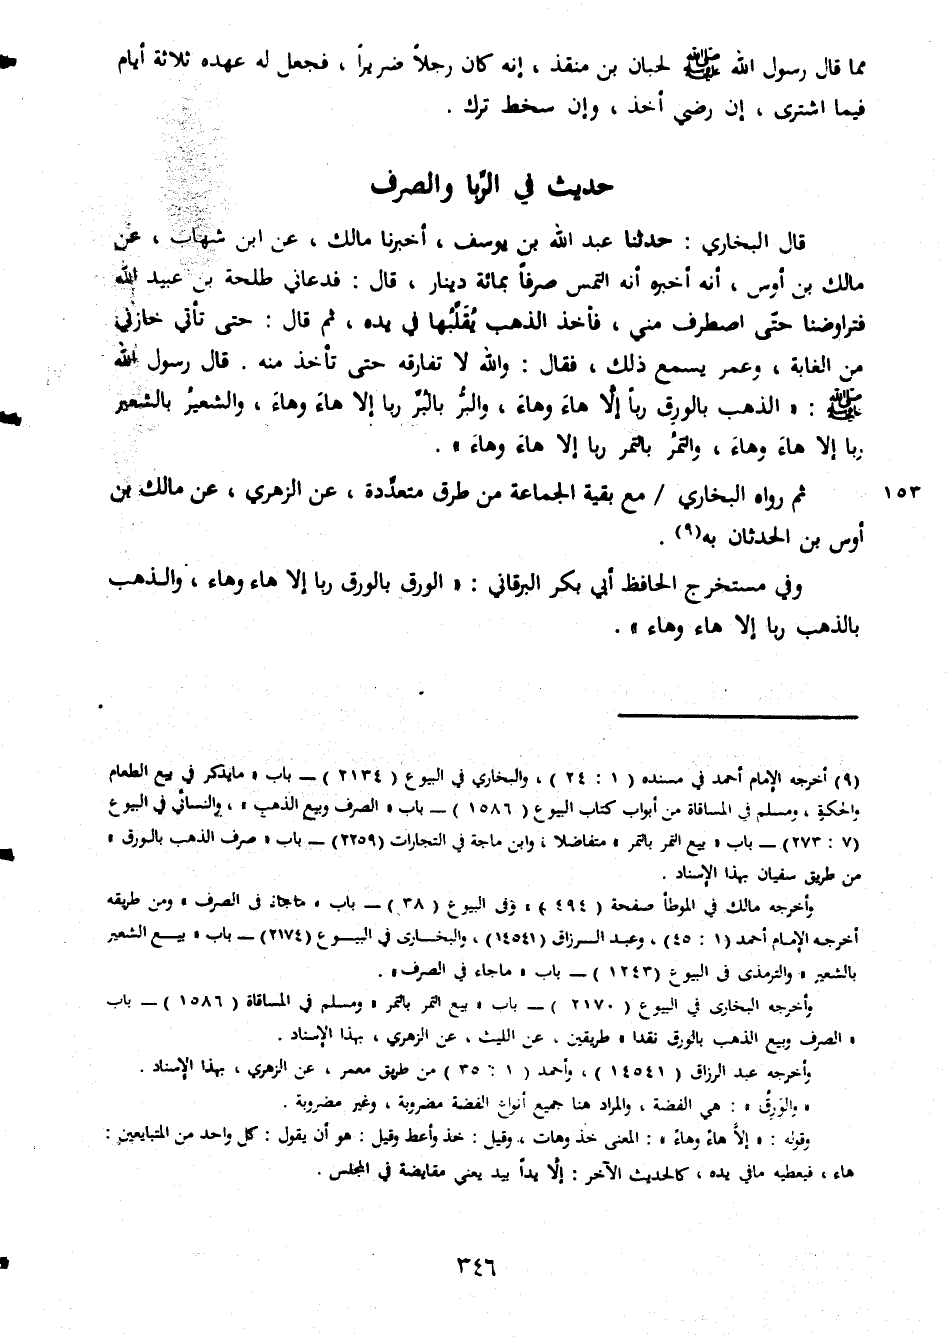 مما قال رسول الله ﷺ لحبان بن منقذ ، إنه كان رجلاً ضريراً ، فجعل له عهده ثلاثة أيام
فيما اشترى ، إن رضي أخذ ، وإن سخط ترك .
حديث في الرِّبا والصرف
قال البخاري : حدثنا عبد الله بن يوسف ، أخبرنا مالك ، عن ابن شهاب ، عن
مالك بن أوس ، أنه أخبره أنه التمس صرفاً بمائة دينار ، قال : فدعاني طلحة بن عبيد الله
فتراوضنا حتّى اصطرف مني ، فأخذ الذهب يُقَلِّبُها في يده ، ثم قال : حتى تأتي خازني
من الغابة ، وعمر يسمع ذلك ، فقال : والله لا تفارقه حتى تأخذ منه . قال رسول الله
ﷺ : « الذهب بالورق رباً إلَّا هاءَ وهاءَ ، والبرُّ بالبُرِّ ربا إلا هاءَ وهاءَ ، والشعيرُ بالشعير
ربا إلا هاءَ وهاءَ ، والتمرُ بالتمر ربا إلا هاءَ وهاءَ » .
ثم رواه البخاري / مع بقية الجماعة من طرق متعدّدة ، عن الزهري ، عن مالك بن ١٥٣
أوس بن الحدثان به(٩) .
وفي مستخرج الحافظ أبي بكر البرقاني : « الورق بالورق ربا إلا هاء وهاء ، والذهب
بالذهب ربا إلا هاء وهاء » .
(٩) أخرجه الإمام أحمد في مسنده ( ١ : ٢٤ ) ، والبخاري في البيوع ( ٢١٣٤ ) ــ باب « مايذكر في بيع الطعام
والحكرة ، ومسلم في المساقاة من أبواب كتاب البيوع ( ١٥٨٦ ) ــ باب « الصرف وبيع الذهب » ، والنسائي في البيوع
(٧ : ٢٧٣) ــ باب « بيع التمر بالتمر » متفاضلا ، وابن ماجة في التجارات (٢٢٥٩) ــ باب « صرف الذهب بالورق »
من طريق سفيان بهذا الإسناد .
وأخرجه مالك في الموطأ صفحة ( ٤٩٤ ) ، في البيوع ( ٣٨ ) ــ باب « ماجاء فى الصرف » ومن طريقه
أخرجه الإمام أحمد (١ : ٤٥) ، وعبد الرزاق (١٤٥٤١) ، والبخارى في البيوع (٢١٧٤) ــ باب « بيع الشعير
بالشعير » والترمذى فى البيوع (١٢٤٣ ) ــ باب « ماجاء في الصرف» .
وأخرجه البخارى في البيوع ( ٢١٧٠ ) ــ باب « بيع التمر بالتمر » ومسلم في المساقاة ( ١٥٨٦ ) ــ باب
« الصرف وبيع الذهب بالورق نقدا » طريقين ، عن الليث ، عن الزهري ، بهذا الإسناد .
وأخرجه عبد الرزاق ( ١٤٥٤١ ) ، وأحمد ( ١ : ٣٥ ) من طريق معمر ، عن الزهري ، بهذا الإسناد .
« والوَرِقُ » : هي الفضة ، والمراد هنا جميع أنواع الفضة مضروبة ، وغير مضروبة .
وقوله : « إلاَّ هاءً وهاءً » : المعنى خذ وهات ، وقيل : خذ وأعط وقيل : هو أن يقول : كل واحد من المتبايعين :
هاء ، فيعطيه مافي يده ، كالحديث الآخر : إلَّا يداً بيد يعني مقايضة في المجلس .
٣٤٦